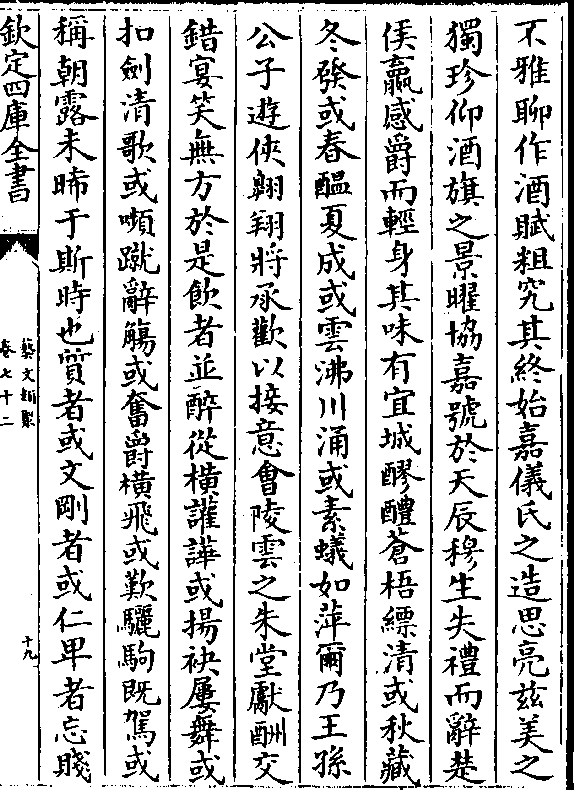 不雅聊作酒賦粗究其終始嘉儀氏之造思亮兹美之
獨珍仰酒旗之景曜協嘉號於天辰穆生失禮而辭楚
侯嬴感爵而輕身其味有宜城醪醴蒼梧縹清或秋藏
冬發或春醖夏成或雲沸川涌或素蟻如萍爾乃王孫
公子遊俠翱翔將承歡以接意㑹陵雲之朱堂獻酬交
錯宴笑無方於是飲者並醉從横讙譁或揚袂屢舞或
扣劍清歌或嚬蹴辭觴或奮爵横飛或歎驪駒既駕或
稱朝露未晞于斯時也質者或文剛者或仁卑者忘賤
欽定四庫全書
藝文類聚
卷七十二
十九